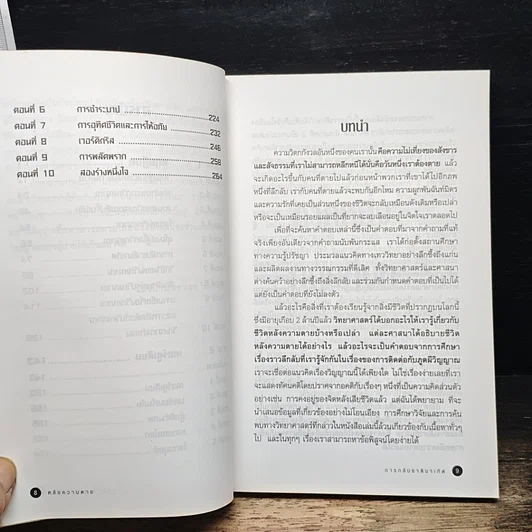 ตอนที่ 6 การชำระบาป 224
ตอนที่ 7 การอุทิศชีวิตและการให้อภัย 232
ตอนที่ 8 เวอร์ดิกริส 246
ตอนที่ 9 การพลัดพราก 258
ตอนที่ 10 สองร่างหนึ่งใจ 264
8 หลังความตาย
บทนำ
ความวิตกกังวลอันหนึ่งของคนเรานั้น คือความไม่เที่ยงของสังขาร
และสัจธรรมที่เราไม่สามารถหลีกหนีได้นั่นคือวันหนึ่งเราต้องตาย แล้ว
จะเกิดอะไรขึ้นกับคนที่ตายไปแล้วก่อนหน้าพวกเราที่เข้าไปอีกภพ
หนึ่งที่ลึกลับ เรากับคนที่ตายแล้วจะพบกันอีกไหม ความผูกพันฉันท์มิตร
และความรักที่เคยเป็นส่วนหนึ่งของชีวิตจะกลับเหมือนดังเดิมหรือเปล่า
หรือจะเป็นเหมือนรอยแผลเป็นที่ยากจะลบเลือนอยู่ในจิตใจเราตลอดไป
เพื่อที่จะค้นหาคำตอบเหล่านี้ซึ่งเป็นคำตอบที่มาจากคำถามที่แท้
จริงเพียงอันเดียวจากคำถามนับพันกระแส เราได้ก่อตั้งสถานศึกษา
ทางความรู้ปรัชญา ประมวลแนวคิดทางเทววิทยาอย่างลึกซึ้งถึงแก่น
และผลิตผลงานทางวรรณกรรมที่ดีเลิศ ทั้งวิทยาศาสตร์และศาสนา
ต่างค้นคว้าอย่างลึกซึ้งถึงสิ่งลึกลับ และร่วมกันกำหนดคำตอบที่เป็นไปได้
แต่ยังเป็นคำตอบที่ยังไม่ลงตัว
แล้วอะไรคือสิ่งที่เราต้องเรียนรู้จากสิ่งมีชีวิตที่ปรากฏบนโลกนี้
ซึ่งมีอายุเกือบ 2 ล้านปีแล้ว วิทยาศาสตร์ได้บอกอะไรให้เรารู้เกี่ยวกับ
ชีวิตหลังความตายบ้างหรือเปล่า แต่ละศาสนาได้อธิบายชีวิต
หลังความตายได้อย่างไร แล้วอะไรจะเป็นคำตอบจากการศึกษา
เรื่องราวลึกลับที่เรารู้จักกันในเรื่องของการติดต่อกับภูตผีวิญญาณ
เราจะเชื่อต่อแนวคิดเรื่องวิญญาณนี้ได้เพียงใด ไม่ใช่เรื่องง่ายเลยที่เรา
จะแสดงทัศนคติโดยปราศจากอคติกับเรื่องๆ หนึ่งที่เป็นความคิดส่วนตัว
อย่างเช่น การคงอยู่ของจิตหลังเสียชีวิตแล้ว แต่ฉันได้พยายาม ที่จะ
นำเสนอข้อมูลที่เกี่ยวข้องอย่างไม่โอนเอียง การศึกษาวิจัยและการค้น
พบทางวิทยาศาสตร์ที่กล่าวในหนังสือเล่มนี้ล้วนเกี่ยวข้องกับเนื้อหาทั่วๆ
ไป และในทุกๆ เรื่องเราสามารถหาข้อพิสูจน์โดยง่ายได้
การกลับชาติมาเกิด 9